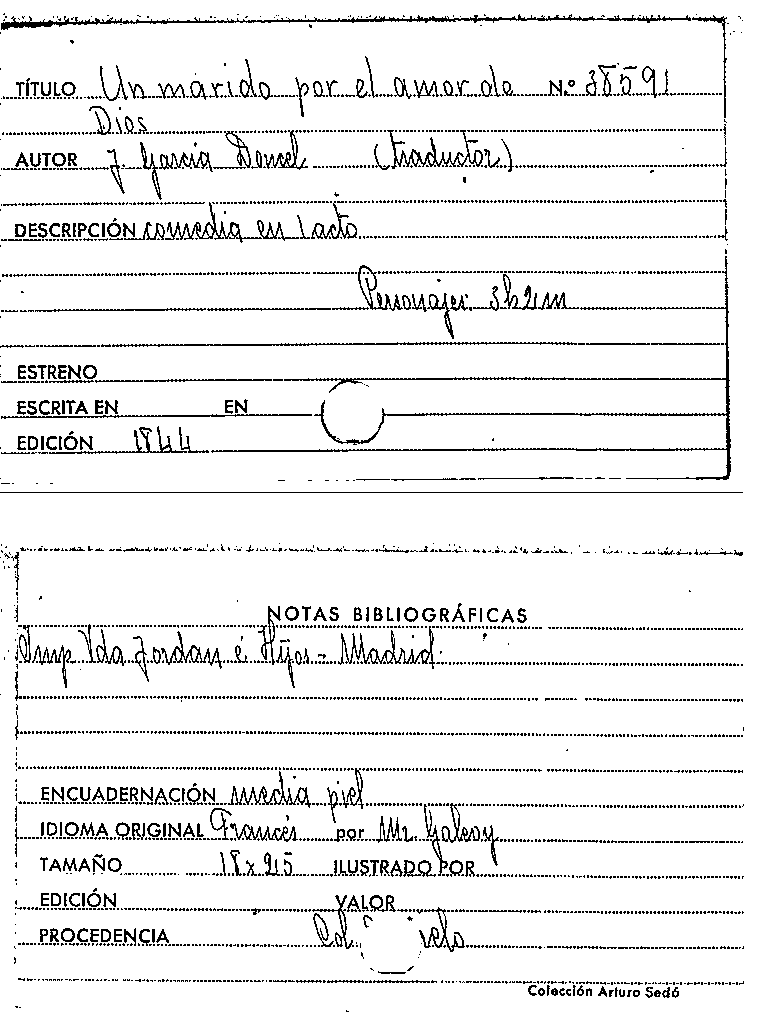 TÍTULO Un marido por el amor de N.º 38591
Dios
AUTOR J. García Doncel (traductor)
DESCRIPCIÓN comedia en 1 acto
Personajes: 3h 2m
ESTRENO
ESCRITA EN EN
EDICIÓN 1844
NOTAS BIBLIOGRÁFICAS
Imp Vda Jordan é Hijos - Madrid.
ENCUADERNACIÓN media piel
IDIOMA ORIGINAL Francés por Mr.
TAMAÑO 18 x 25 ILUSTRADO POR
EDICIÓN VALOR
PROCEDENCIA Col.
Colección Arturo Sedó